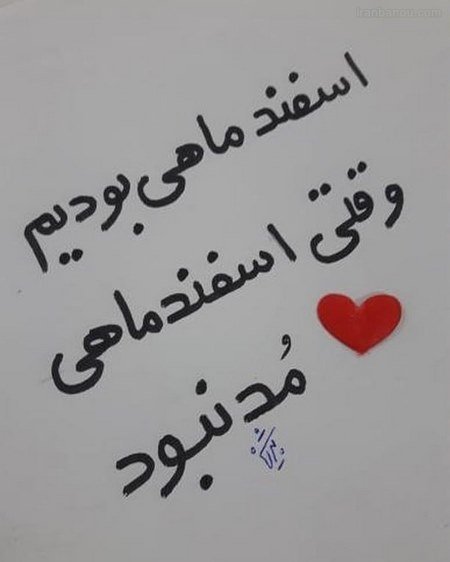 iranbanou.com
اسفند ماهی بودیم
وقتی اسفندماهی
مُد نبود